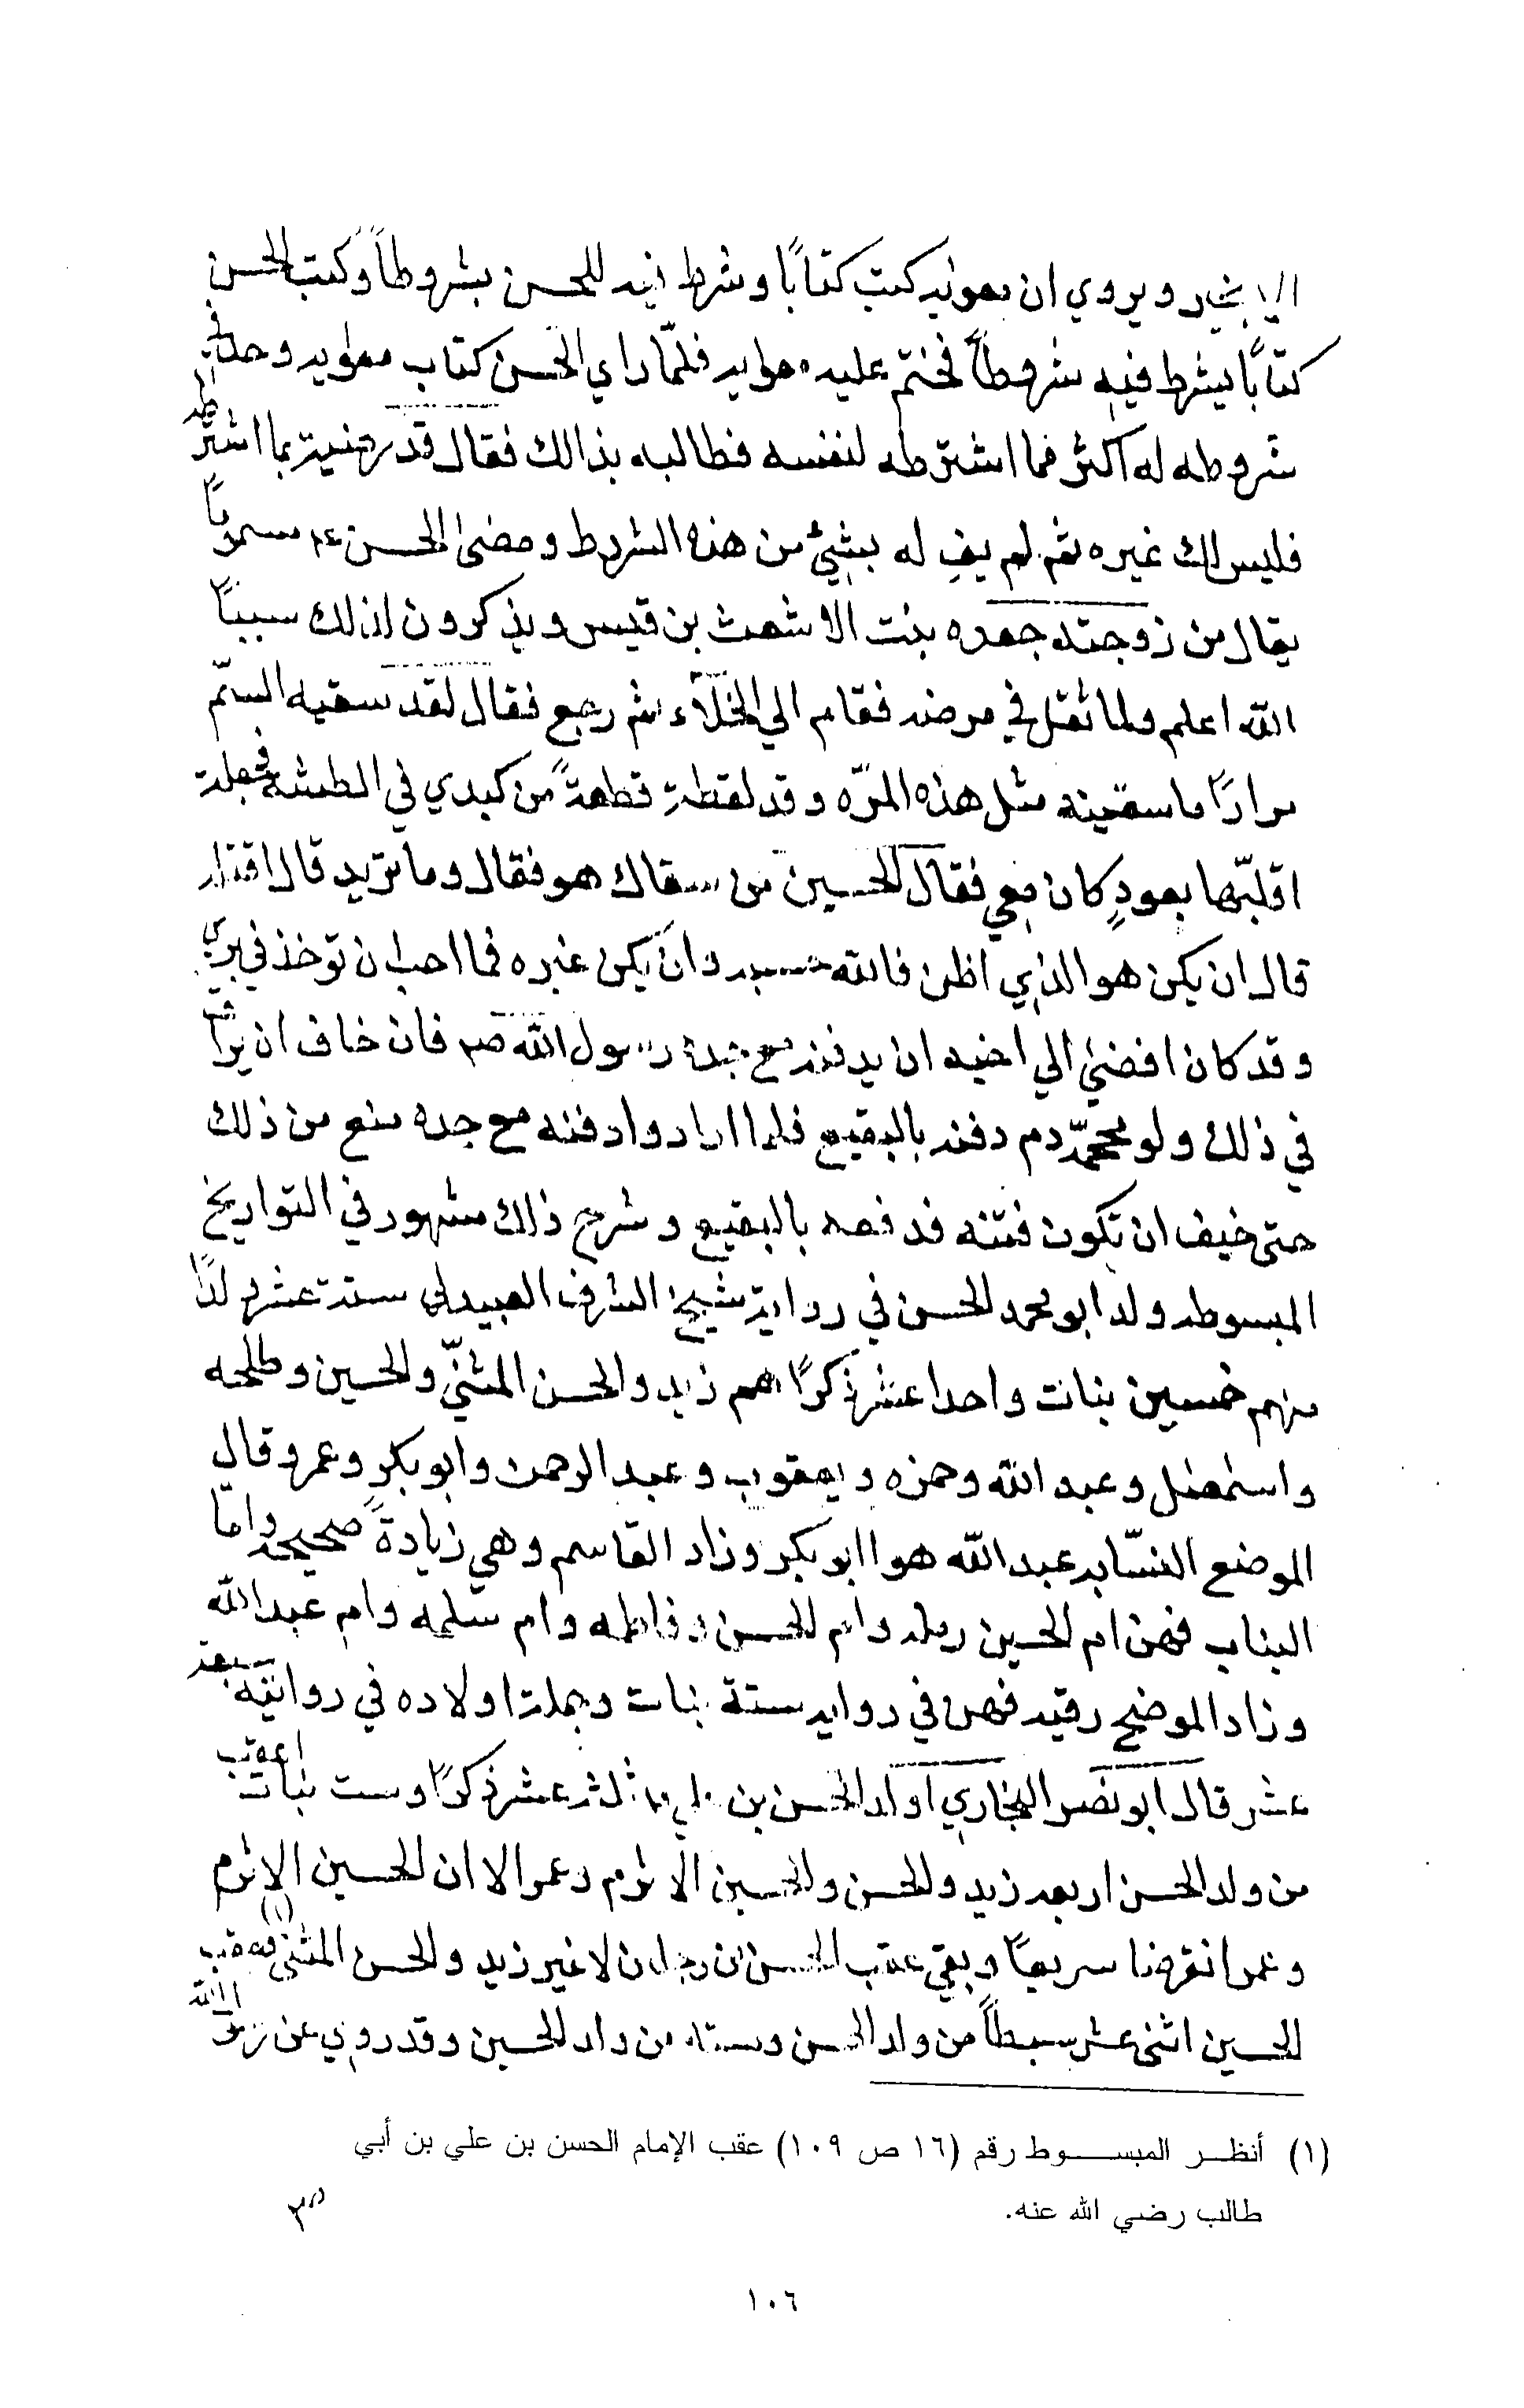 الا بخير ويروي ان معويه كتب كتابًا وشرط فيه للحسن شروطاً وكتب الحسن
كتابًا يشرط فيه شروطاً فختم عليه معوايه فلمّا راي الحسن كتاب معاويه وجد
شروطه له اكثر مما اشترطه لنفسه فطالبه بذالك فقال قد رضيت بما اشترطه
فليس لك غيره ثم لم يفِ له بشيئٍ من هذه الشروط ومضىٰ الحسن ع م مسمومًا
يقال من زوجته جعده بنت الاشعث بن قيس ويذكرون لذلك سببًا
الله اعلم ولما ثقل في مرضه فقام الي الخلآء ثم رجع فقال لقد سقيه السمّ
مرارًا ما سقينه مثل هذه المرّه وقد لقطة قطعةً من كبدي في الطشة فجعلة
اقلبّها بعودٍ كان معي فقال الحسين من سقاك هو فقال وما تريد قال اقتله
قال ان يكن هو الذي اظن فالله حسبه وان يكن غيره فما احب ان توخذ في بريّ
وقد كان افضىٰ الي اخيه ان يدفنه مع جده رسول الله صم فان خاف ان يراق
في ذلك ولو محجمة دم دفنه بالبقيع فلما ارادوا دفنه مع جده منع من ذلك
حتى خيف ان تكون فتنه فدفعه بالبقيع وشرح ذلك مشهور في التواريخ
المبسوطه ولد ابو محمد الحسن في رواية شيخ الشرف العبيدلي ستة عشر ولدًا
منهم خمسين بنات واحدا عشر ذكرًا هم زيد والحسن المثنّي والحسين وطلحه
واسمعيل وعبد الله وحمزه ويعقوب وعبد الرحمن وابو بكرٍ وعمر وقال
الموضع النسّابه عبد الله هو ابو بكر وزاد القاسم وهي زيادةً صحيحه وامّا
البناب فهن ام الحسين رمله وام الحسن وفاطمه وام سلمه وام عبد الله
وزاد الموضح رقيه فهن في روايه ستة بنات وجملة اولاده في روايتيه سبعة
عشر قال ابو نصر البخاري اولد الحسن بن علي ع م ثلثة عشر ذكرًا وست بنات اعقب
من ولد الحسن اربعه زيد والحسن والحسين الاثرم وعمر الا ان الحسين الاثرم
وعمر انقرضا سريعًا وبقي عقب الحسن من رجلان لا غير زيد والحسن المثنى (١) فعقب
الحسين اثنى عشر سبطاً من ولد الحسن وسته من ولد الحسين وقد روي عن
(١) أنظر المبسوط رقم (١٦ ص ١٠٩) عقب الإمام الحسن بن علي بن أبي
طالب رضي الله عنه.
١٠٦